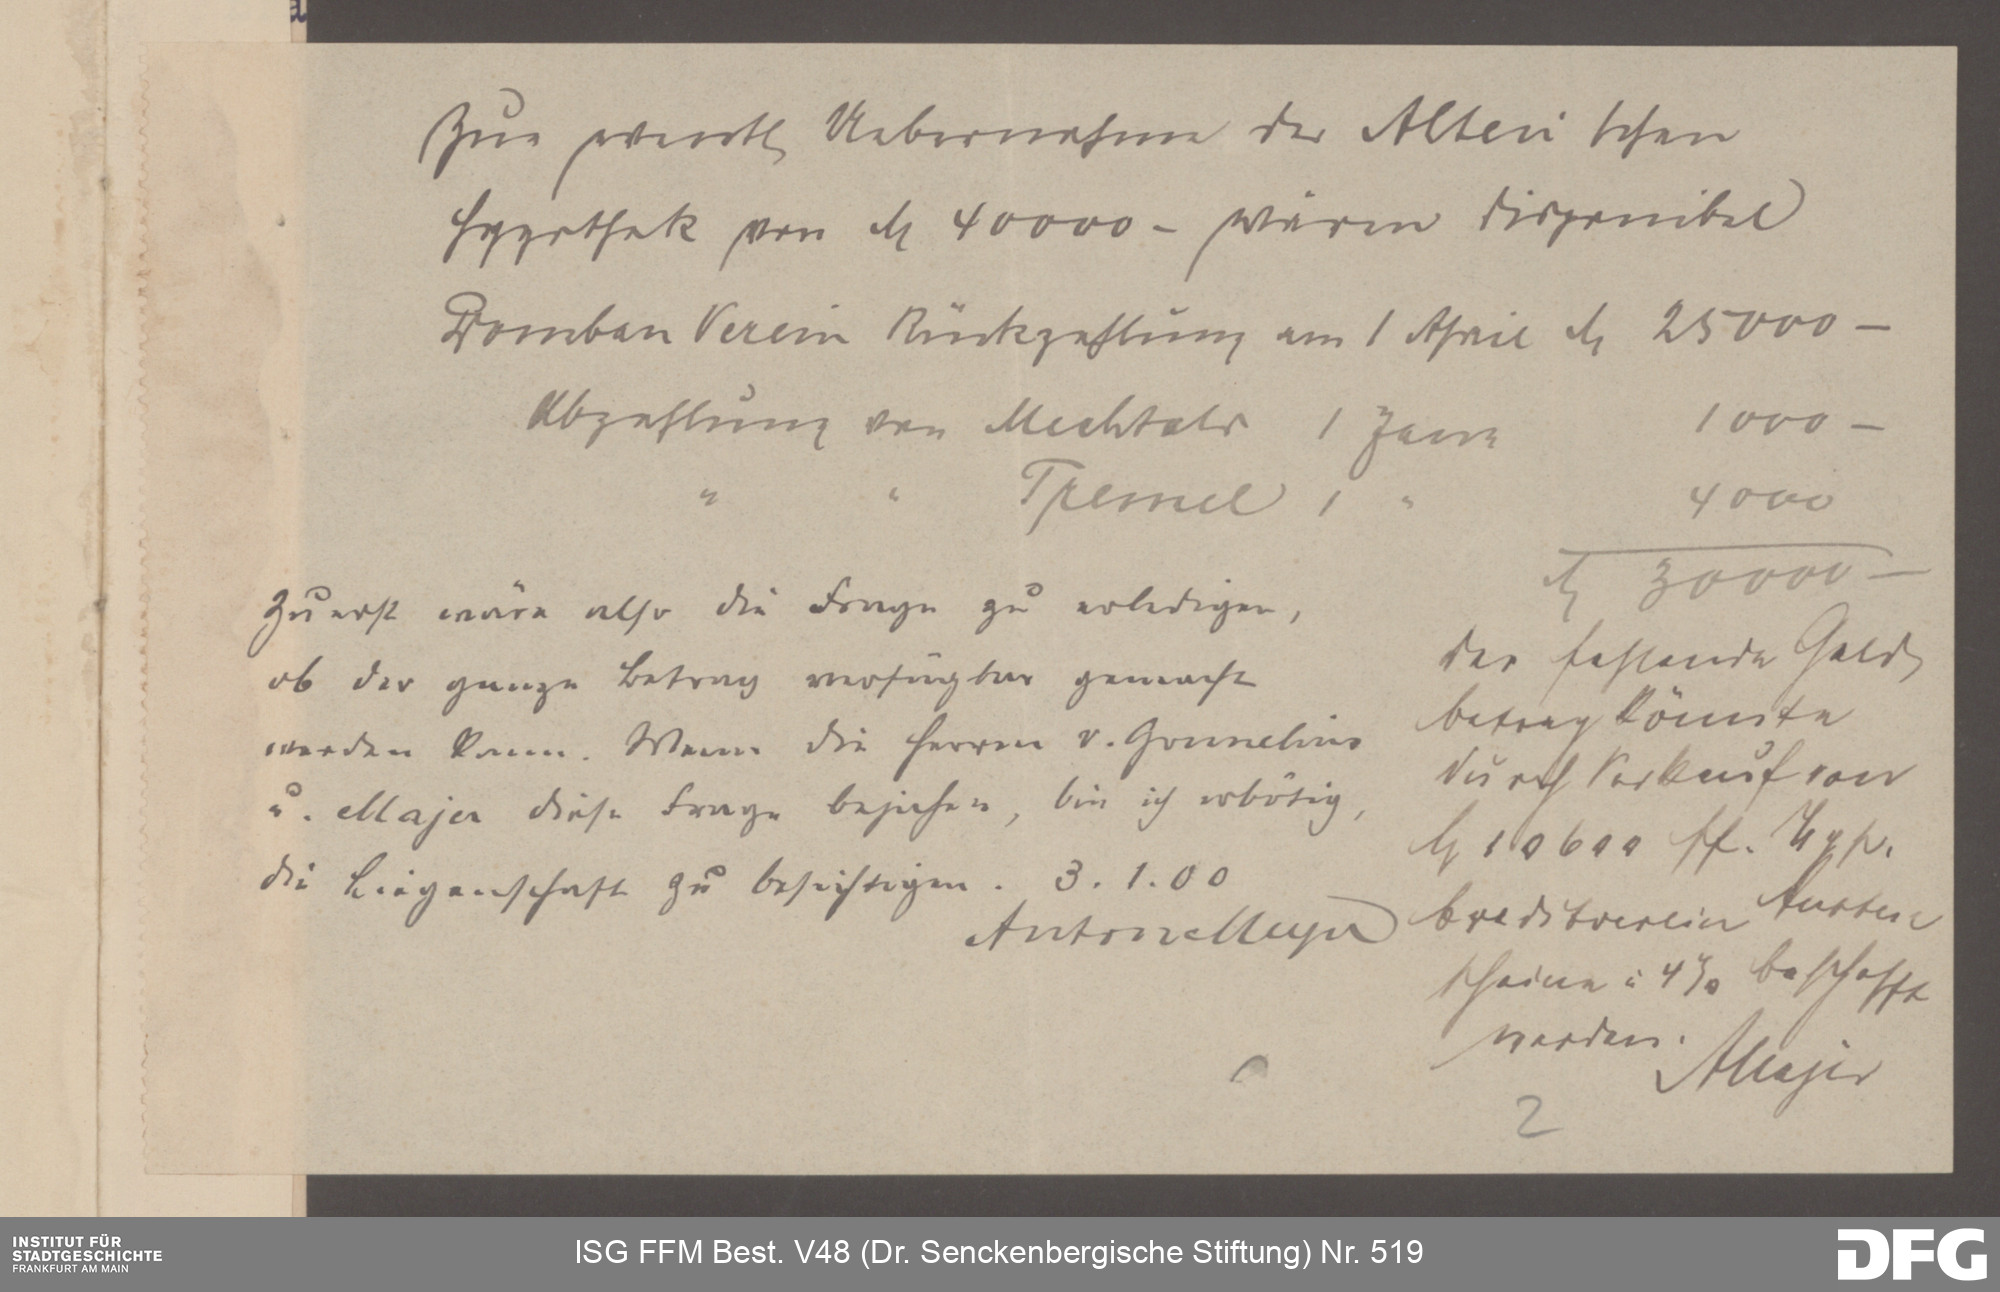 Zur eventl Uebernahme der Alten'schen
Hypothek von M 40000 – wären disponibel
Dombau Verein Rückzahlung am 1 April M 25000 –
Abzahlung von 1 1000 –
" " 1 " 4000
M 30000 –
Zuerst wäre also die Frage zu erledigen,
ob der ganze Betrag verfügbar gemacht
werden kann. Wenn die Herren v.
u. Majer diese Frage bejahen, bin ich erbötig,
die Liegenschaft zu besichtigen. 3.1.00
Anton Meyer
der fehlende Geld
betrag könnte
durch Verkauf von
M 10600 ff. Hyp.
kreditverein Anteil
scheine à 4% beschafft
werden.
AMajer
2
INSTITUT FÜR
STADTGESCHICHTE
FRANKFURT AM MAIN
ISG FFM Best. V48 (Dr. Senckenbergische Stiftung) Nr. 519
DFG